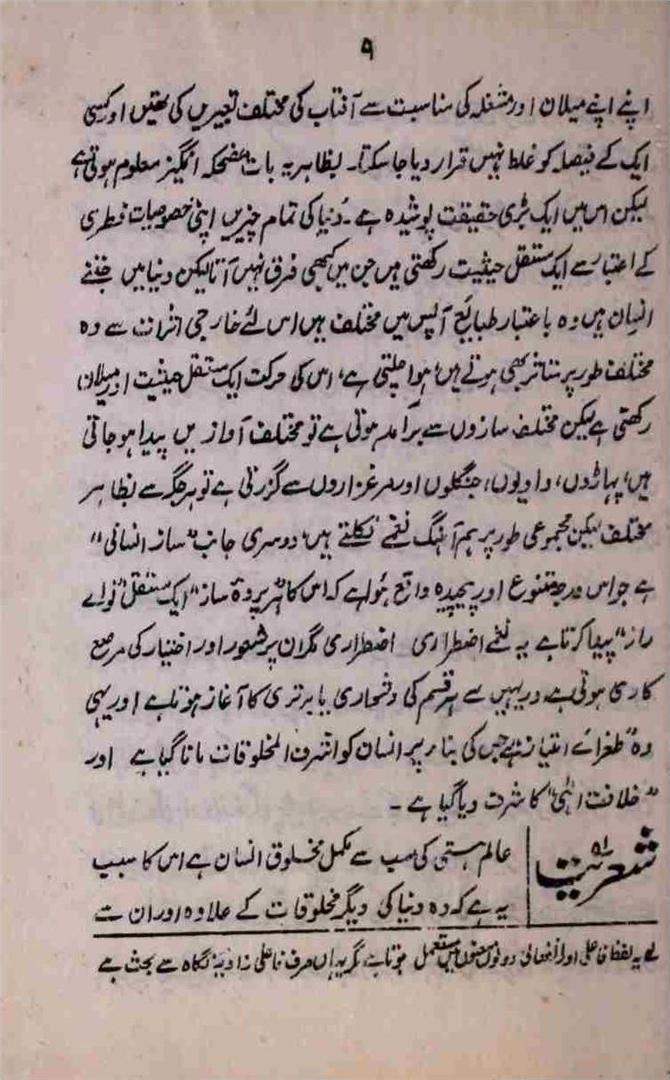 ۹
اپنے اپنے میلان اور مشغلہ کی مناسبت سے آفتاب کی مختلف تعبیریں کی تھیں اور کسی
ایک کے فیصلہ کو غلط نہیں قرار دیا جا سکتا۔ بظاہر یہ بات مضحکہ انگیز معلوم ہوتی ہے
لیکن اس میں ایک بڑی حقیقت پوشیدہ ہے۔ دُنیا کی تمام چیزیں اپنی خصوصیات فطری
کے اعتبار سے ایک مستقل حیثیت رکھتی ہیں جن میں کبھی فرق نہیں آتا لیکن دنیا میں جتنے
انسان ہیں وہ باعتبار طبایع آپس میں مختلف ہیں اس لئے خارجی اثرات سے وہ
مختلف طور پر متاثر بھی ہوتے ہیں، ہوا چلتی ہے، اس کی حرکت ایک مستقل حیثیت اور میلان
رکھتی ہے لیکن مختلف سازوں سے برآمد ہوتی ہے تو مختلف آوازیں پیدا ہو جاتی
ہیں، پہاڑوں، وادیوں، جنگلوں اور مرغزاروں سے گزرتی ہے تو ہر جگہ سے بظاہر
مختلف لیکن مجموعی طور پر ہم آہنگ نغمے نکلتے ہیں، دوسری جانب "ساز انسانی"
ہے جو اس درجہ متنوع اور پیچیدہ واقع ہُوا ہے کہ اس کا ہر "پردۂ ساز" ایک مستقل "نواے
راز" پیدا کرتا ہے یہ نغمے اضطراری اضطراری مگر ان پر شعور اور اختیار کی مرصع
کاری ہوتی ہے وریہیں سے ہر قسم کی دشواری یا برتری کا آغاز ہوتا ہے اور یہی
وہ "طغراے امتیاز" ہے جس کی بناء پر انسان کو اشرف المخلوقات مانا گیا ہے اور
"خلافت الٰہی" کا شرف دیا گیا ہے۔
شعریت لہ
عالم ہستی کی سب سے مکمل مخلوق انسان ہے اس کا سبب
یہ ہے کہ وہ دنیا کی دیگر مخلوقات کے علاوہ اور ان سے
لہ یہ لفظ فاعلی اور انفعالی دونوں معنوں میں مستعمل ہوتا ہے، مگر یہاں صرف فاعلی زاویۂ نگاہ سے بحث ہے